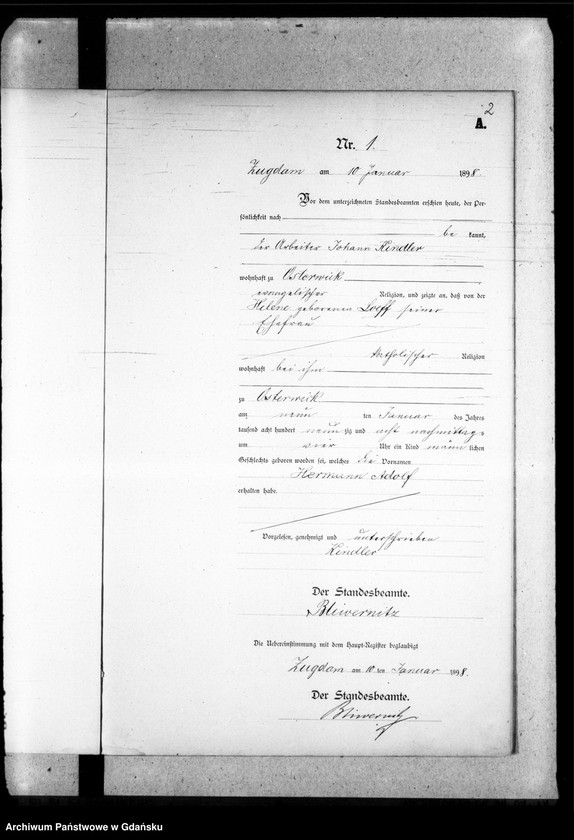 2
A.
Nr. 1.
Zugdam am 10 Januar 1898.
Vor dem unterzeichneten Standesbeamten erschien heute, der Per-
sönlichkeit nach
be kannt,
der Arbeiter Johann Kindler
wohnhaft zu Osterwick
evangelischer Religion, und zeigte an, daß von der
Helene geborenen Loeff seiner
Ehefrau
katholischer Religion
wohnhaft bei ihm
zu Osterwick
am neun ten Januar des Jahres
tausend acht hundert neun zig und acht nachmittags
um vier Uhr ein Kind männ lichen
Geschlechts geboren worden sei, welches die Vornamen
Hermann Adolf
erhalten habe.
Vorgelesen, genehmigt und unterschrieben
Kindler
Der Standesbeamte.
Bliwernitz
Die Uebereinstimmung mit dem Haupt-Register beglaubigt
Zugdam am 10 ten Januar 1898.
Der Standesbeamte.
Bliwernitz
Archiwum Państwowe w Gdańsku